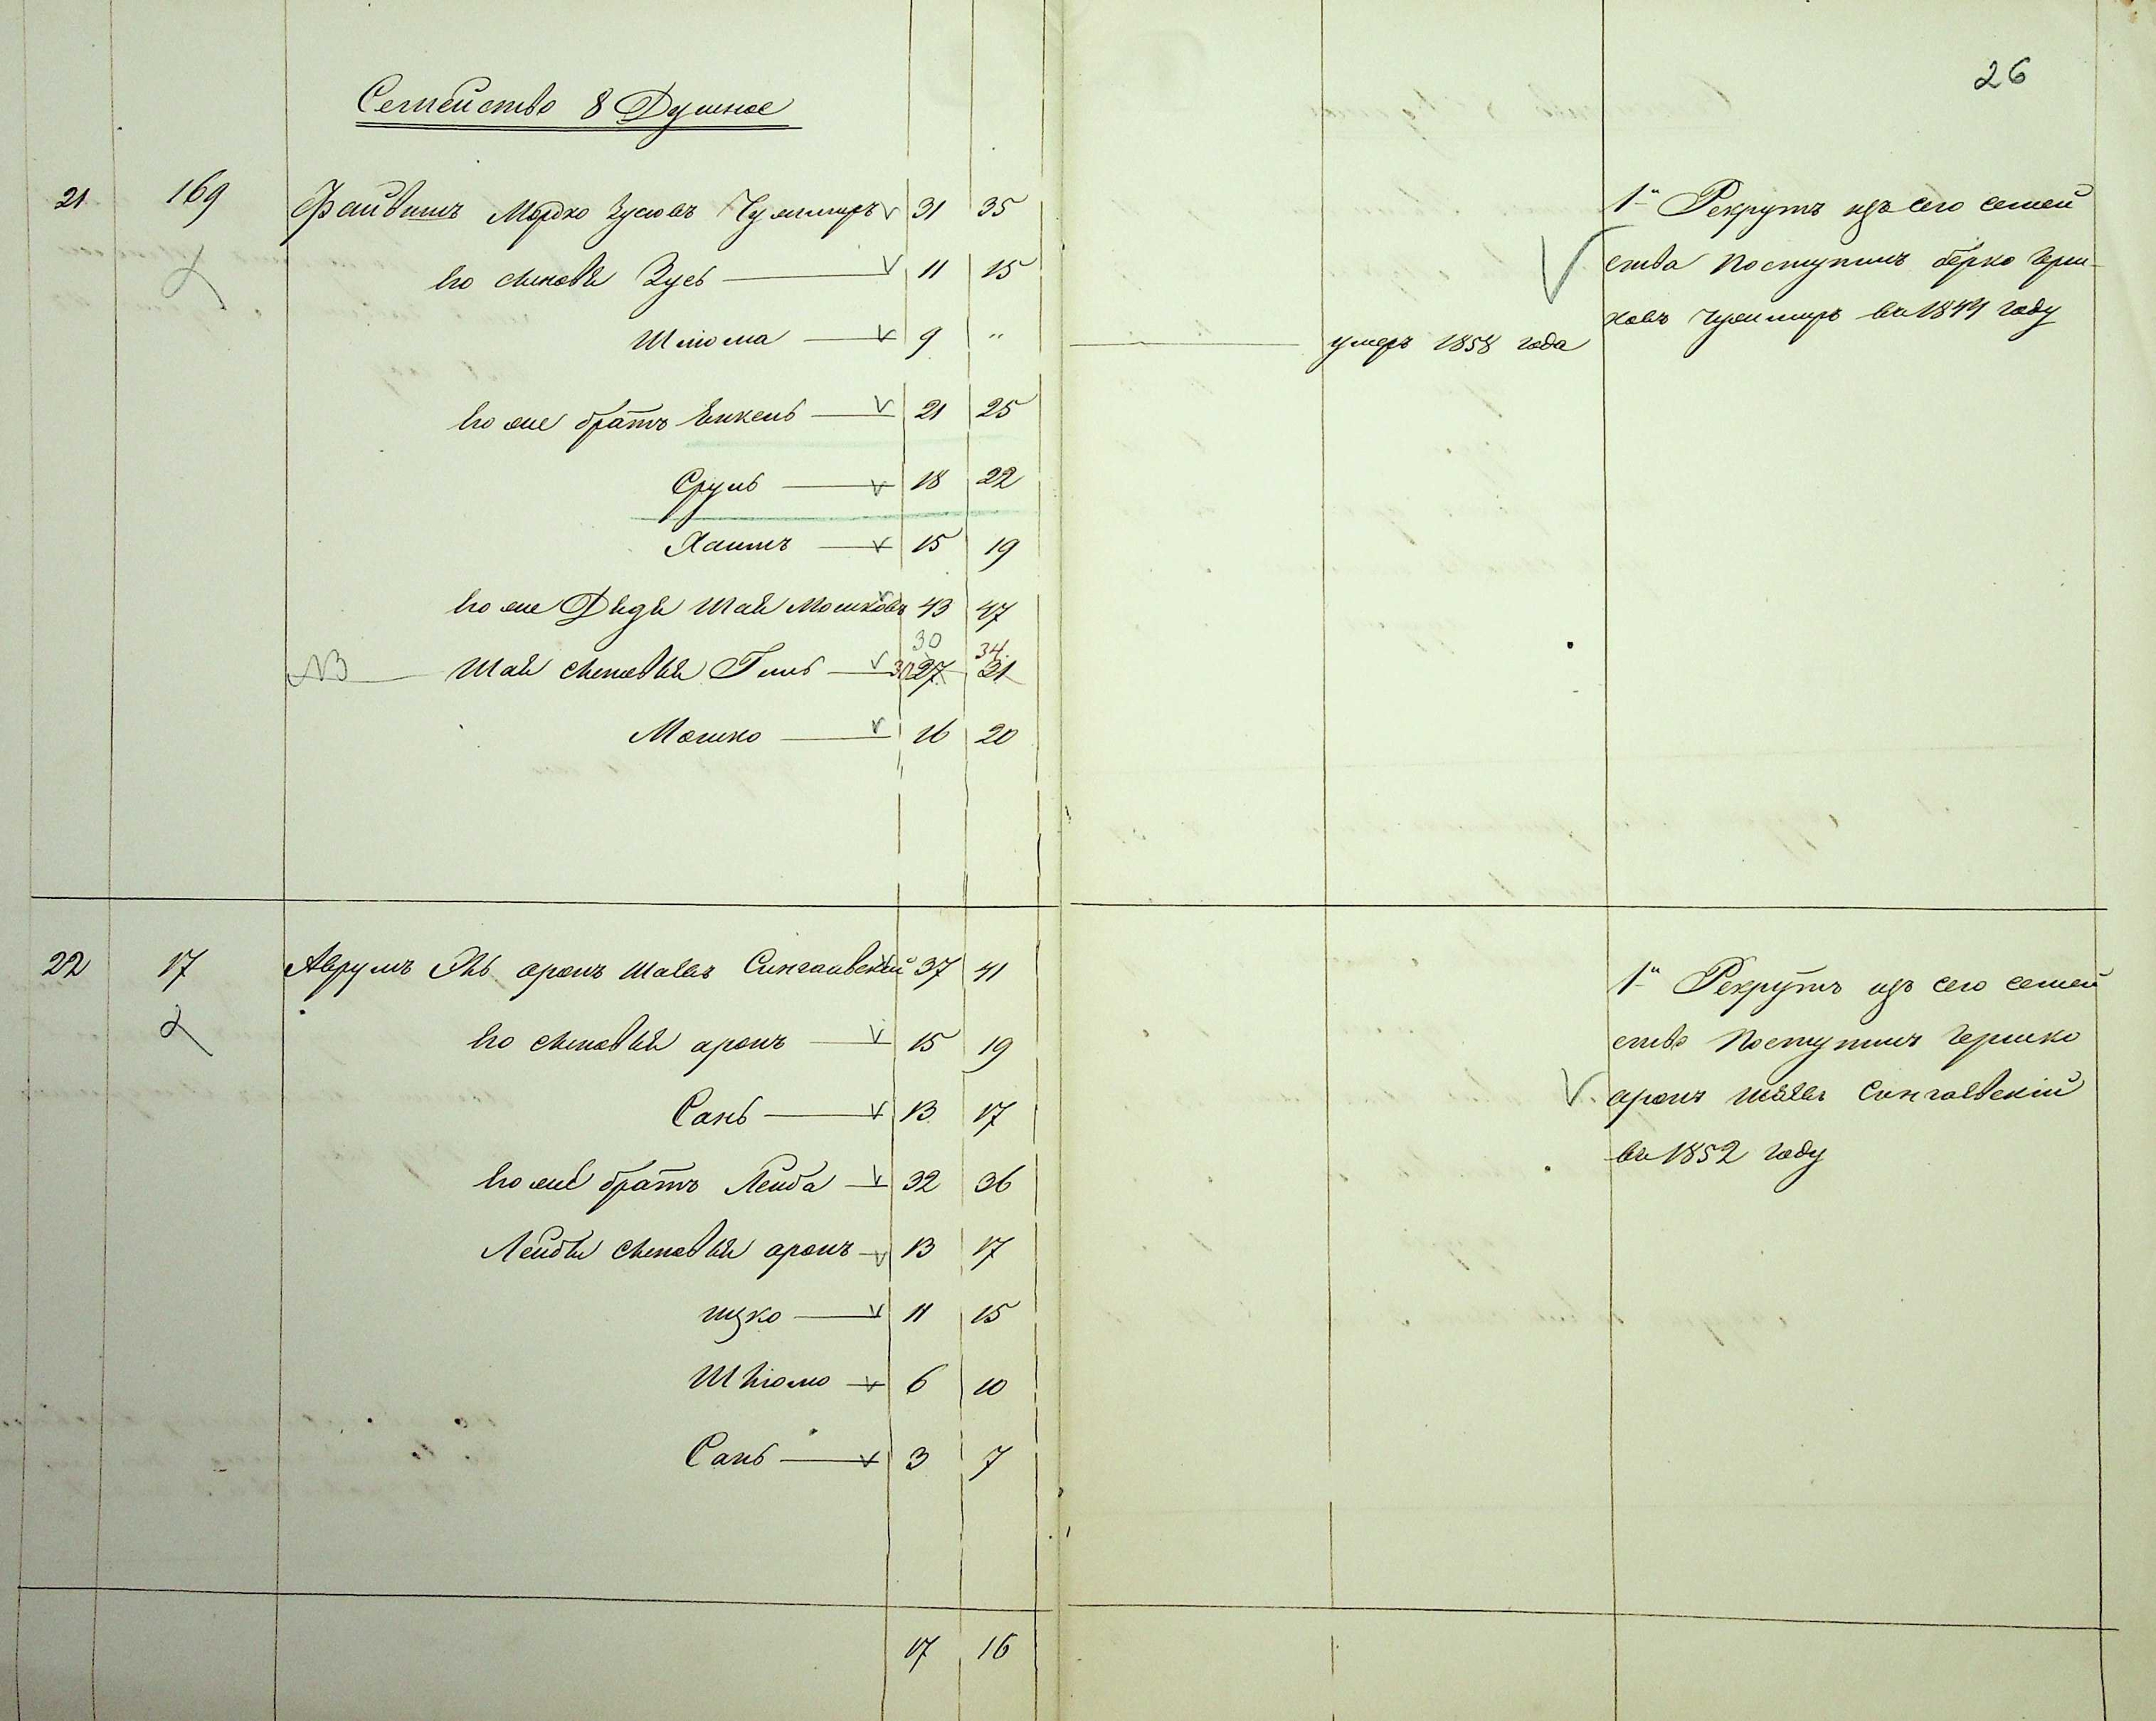 26
Семейство 8 Душное
21 169 Файвишъ Мордко Зусювъ Чулмиръ 31 35
Его сыновья Зусь 11 15
Шлюма 9 " умеръ 1858 года
Его же братъ Енкель 21 25
Сруль 18 22
Хаимъ 15 19
Его же Дядя Шая Мошковъ 43 47
30 34
NB Шаи сыновья Гиль 27 31
Мошко 16 20
1й Рекрутъ изъ сего семей
ства Поступилъ берко Герш-
ковъ въ 1844 году
22 17 Аврумъ Янь аронъ Шаевъ Сингаивскій 37 41
Его сыновья аронъ 15 19
Сань 13 17
Его же братъ Лейба 32 36
Лейбы сыновья аронъ 13 17
ицко 11 15
Шлюмо 6 10
Сань 3 7
1й Рекрутъ изъ сего семей
ства Поступилъ Гершко
аронъ Шаевъ Сингаевскій
въ 1852 году
17 16